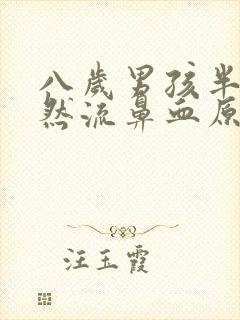 八歲男孩半
然流鼻血原
汪玉霞